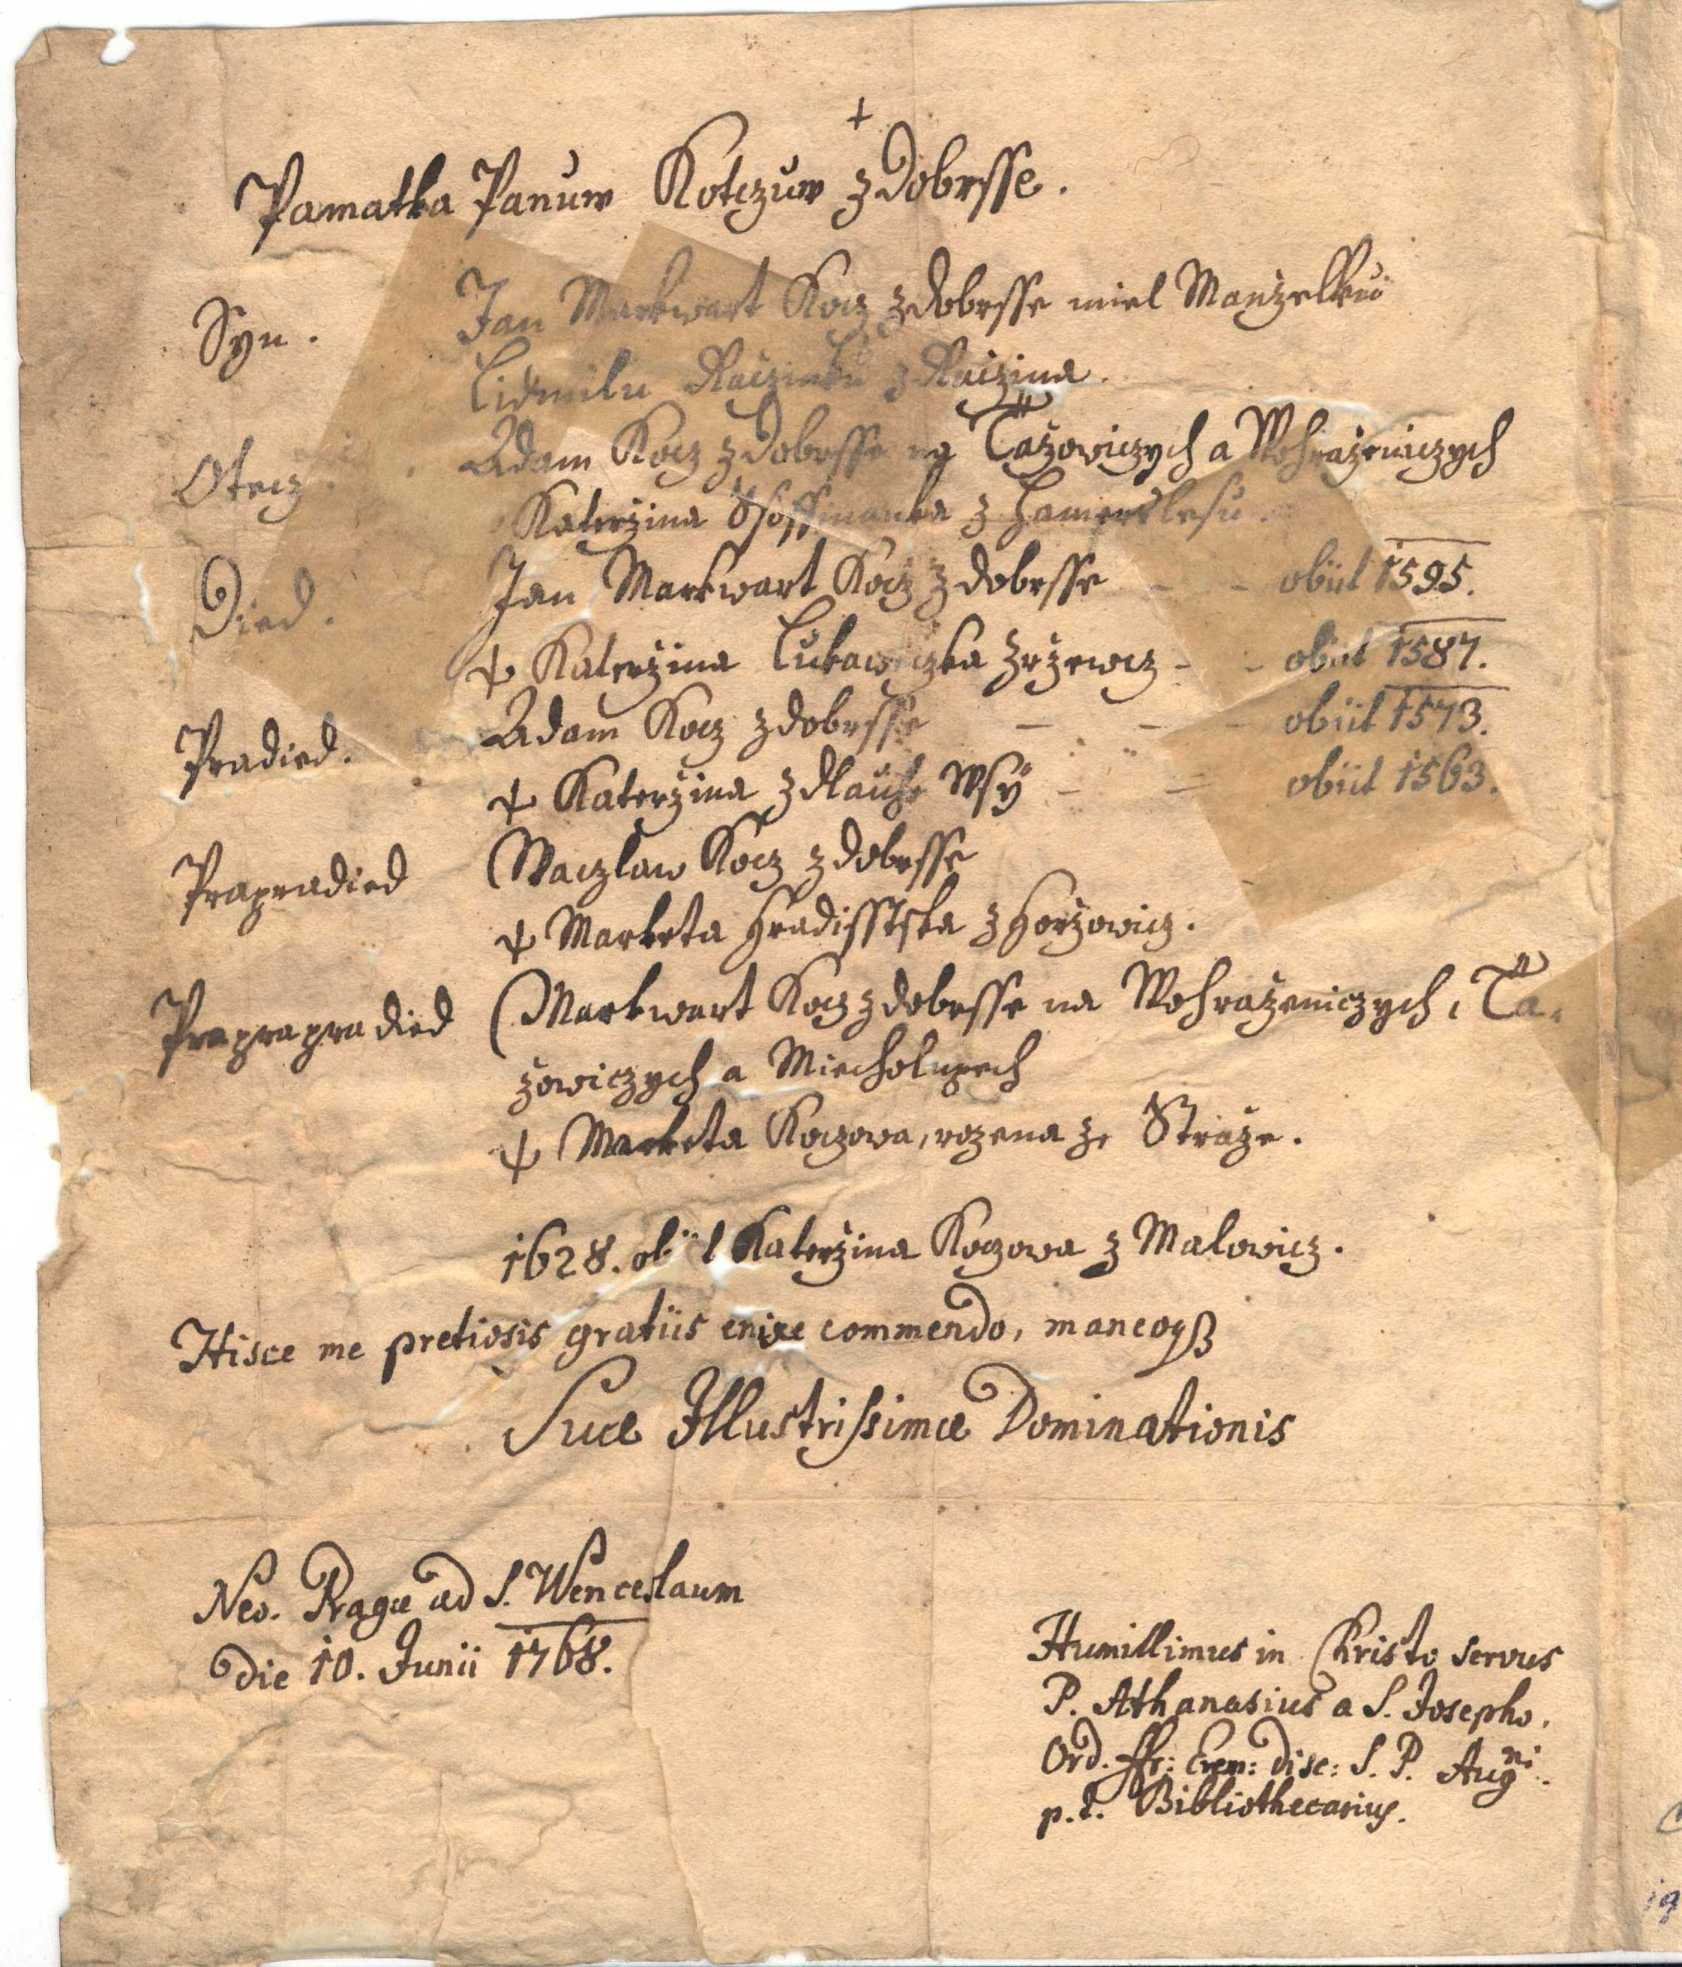 +
Pamatka Panuw Kotczuw z Dobrsse.
Syn. Jan Markwart Kocz z Dobrsse miel Manzelku
Lidmilu Raczinku z Raczina.
Otecz. Adam Kocz z Dobrsse na Tažowiczych a Wohrazeniczych
Katerzina z Hamerslesu.
Died. Jan Markwart Kocz z Dobrsse - - obiit 1595.
+ Katerzina Lukawiczka z Rzewcz - - obiit 1587.
Pradied. Adam Kocz z Dobrsse - - - obiit 1573.
+ Katerzina z Dlauhe Wsy - - obiit 1563.
Prapradied Waczlaw Kocz z Dobrsse
+ Marketa Hradisstska z Horzowicz.
Praprapradied Markwart Kocz z Dobrsse na Wohrazeniczych, Ta-
zowiczych a Miecholupech
+ Marketa Koczowa, rozena ze Straze.
1628. obiit Katerzina Koczowa z Malowicz.
Hisce me pretiosis gratiis enixe commendo, maneoqß
Suæ Illustrissimæ Dominationis
Neo. Pragæ ad S. Wenceslaum
die 10. Junii 1768.
Humillimus in Christo servus
P. Athanasius a S. Josepho.
Ord. ffr: Erem: disc: S. P. Augni.
p.t. Bibliothecarius.